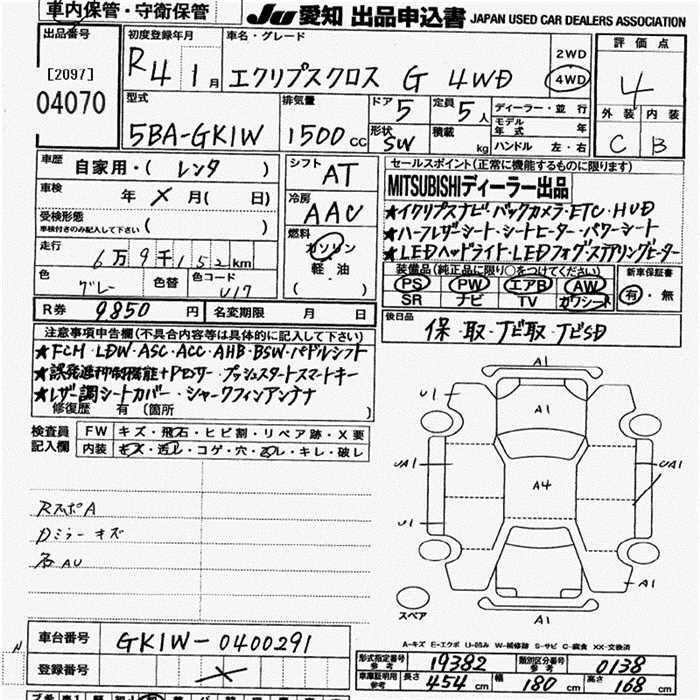 車内保管・守衛保管
JU 愛知 出品申込書 JAPAN USED CAR DEALERS ASSOCIATION
出品番号
[2097]
04070
初度登録年月
R4 1月
車名・グレード
エクリプスクロス G 4WD
2WD
4WD
評価点
4
外装 内装
C B
型式
5BA-GK1W
排気量
1500 CC
ドア 5
定員 5人
形状 SW
積載 kg
ディーラー・並行
モデル年式 年
ハンドル 左・右
車歴
自家用・( レンタ )
車検
年 × 月( 日)
受検形態
車検付きのみ記入して下さい ( )
走行
6万9千152km
色
グレー
色替
色コード
U17
シフト
AT
冷房
AAC
燃料
ガソリン
軽油
( )
セールスポイント(正常に機能するものに限ります)
MITSUBISHIディーラー出品
★イクリプスナビ・バックカメラ・ETC・HUD
★ハーフレザーシート・シートヒーター・パワーシート
★LEDヘッドライト・LEDフォグ・ステアリングヒーター
装備品(純正品に限り○をつけてください)
PS PW エアB AW
SR ナビ TV カワシート
新車保証書
有・無
R券 9850円
名変期限 月 日
後日品
保・取・ナビ取・ナビSD
注意事項申告欄(不具合内容等は具体的に記入して下さい)
★FCM・LDW・ASC・ACC・AHB・BSW・パドルシフト
★誤発進抑制機能+Pセンサー・プッシュスタートスマートキー
★レザー調シートカバー・シャークフィンアンテナ
修復歴 有 (箇所 )
検査員記入欄
FW キズ・飛石・ヒビ割・リペア跡・X要
内装 キズ・汚レ・コゲ・穴・ヌレ・キレ・破レ
RスポA
Dミラーキズ
AU
A1
U1
A1
UA1
UA1
A4
U1
A1
A1
スペア
A-キズ E-エクボ U-凹み W-補修跡 S-サビ C-腐食 XX-交換済
車台番号
GK1W-0400291
登録番号
形式指定番号 参考 19382
類別区分番号 参考 0138
車庫証明用 参考 長さ 454cm 幅 180cm 高さ 168cm